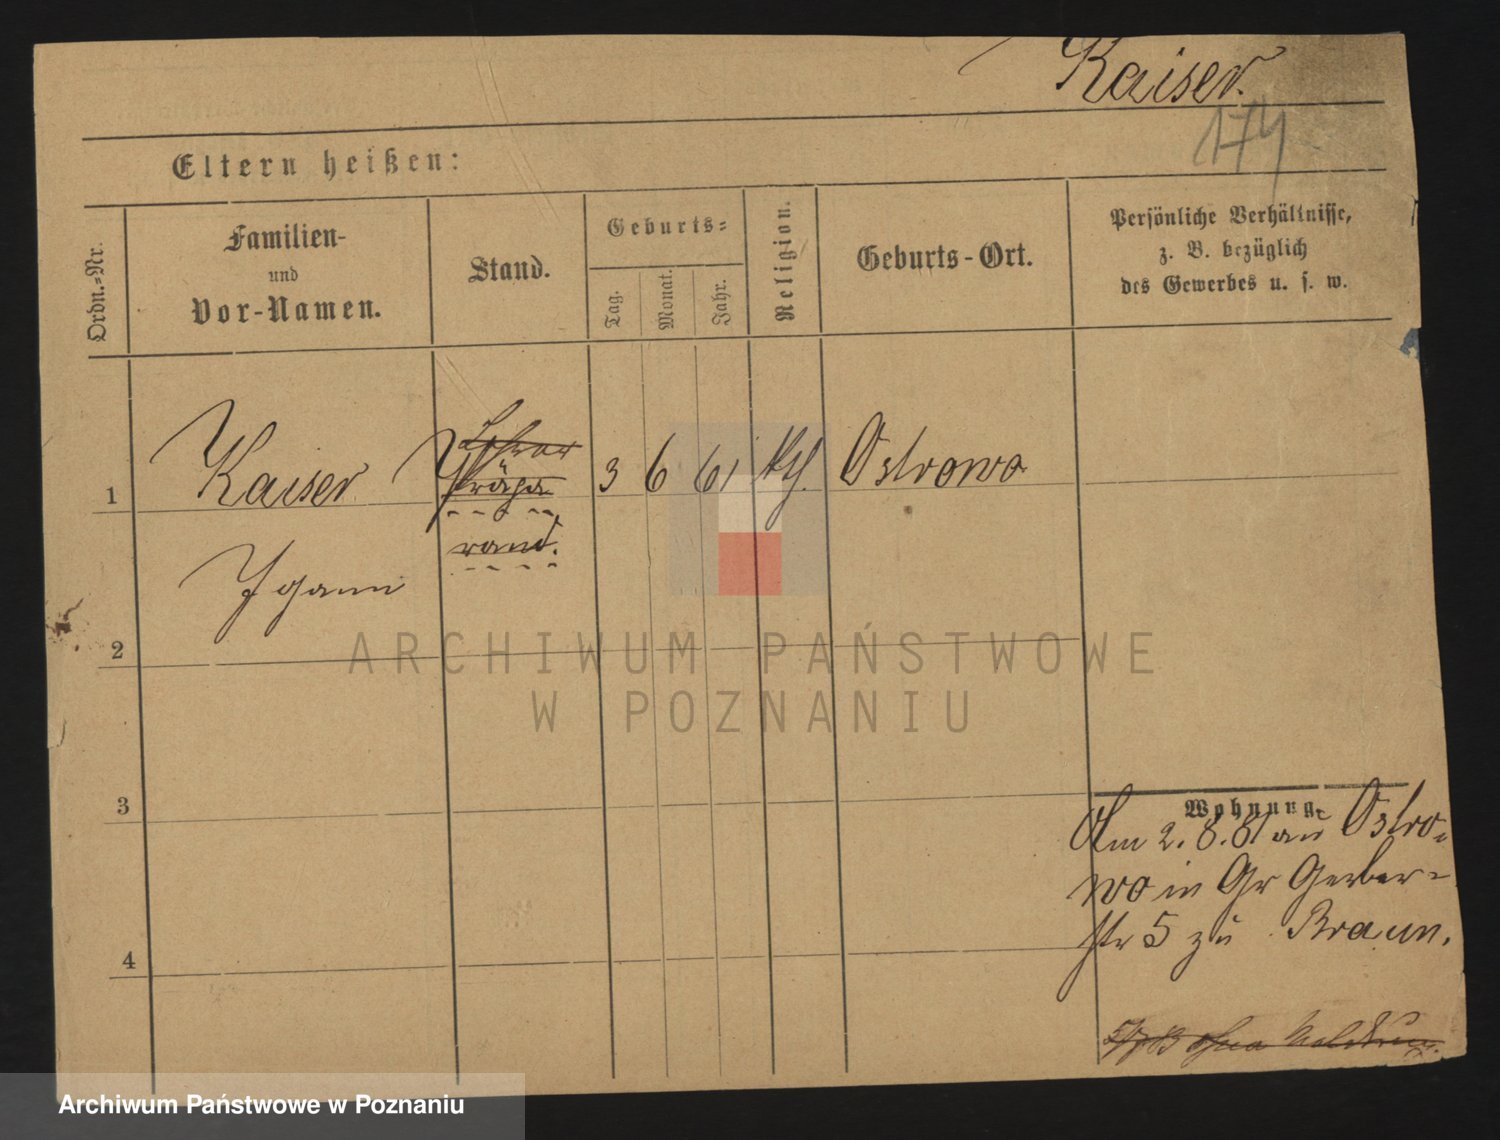 Kaiser.
174
Eltern heißen:
Ordn.-Nr.
Familien-
und
Vor-Namen.
Stand.
Geburts-
Tag.
Monat.
Jahr.
Religion.
Geburts-Ort.
Persönliche Verhältnisse,
z. B. bezüglich
des Gewerbes u. s. w.
1
Kaiser
3 6 61 kth. Ostrowo
rand.
2
3
4
ARCHIWUM PAŃSTWOWE
W POZNANIU
Wohnung.
Am 2.8.81 aus Ostro-
wo in Gr Gerber-
str 5 zu Braun.
Archiwum Państwowe w Poznaniu